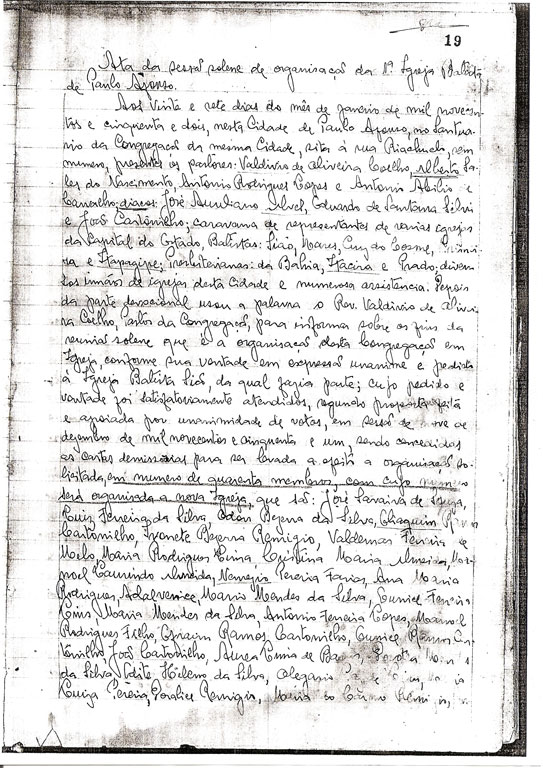 19
Ata da sessão solene de organisação da 1ª Igreja Batista
de Paulo Afonso.
Aos vinte e sete dias do mês de janeiro de mil novecen-
tos e cinquenta e dois, nesta Cidade de Paulo Afonso, no Santua-
rio da Congregação da mesma Cidade, sita à rua Riachuelo, sem
numero, presentes os pastores: Valdivio de Oliveira Coelho, Alberto Sa-
les do Nascimento, Antonio Rodrigues Lopes e Antonio Abilio e
Carvalho; diacos: José Aureliano Alves, Eduardo de Santana Silva
e José Cantonilho; caravana de representantes de varias egrejas
da Capital do Estado, Batistas: Sião, Mares, Cruz do Cosme,
e Itapagipe; Presbiterianas: da Bahia, Itacira e Prado; diver-
sos irmãos de igrejas desta Cidade e numerosa assistencia. Depois
da parte devocional usou a palavra o Rev. Valdivio de Olivei-
ra Coelho, Pastor da Congregação, para informa sobre os fins da
reunião solene que é a organisação desta Congregação em
Igreja, conforme sua vontade em expressão unanime e pedido
à Igreja Batista Sião, da qual fazia parte; cujo pedido e
vontade foi satisfatoriamente atendidos, segundo proposta feita
e apoiada por unanimidade de votos, em sessão de nove de
dezembro de mil novecentos e cinquenta e um, sendo concedidas
as cartas demissorias para ser levada a efeito a organisação so-
licitada, em numero de quarenta membros, com cujo numero
será organisada a nova Igreja, que são: José Saraiva de Souza,
Luiz Ferreira da Silva, Odon Bezerra da Silva,
Cantonilho, Ivonete Bezerra Remigio, Valdemar Ferreira de
Melo, Maria Rodrigues Lima, Cristina Maria Almeida, Ma-
noel Laurindo Almeida, Nemezio Pereira Farias, Ana Maria
Rodrigues, Adalvenice, Mario Mendes da Silva, Eunice Ferreira
Maria Mendes da Silva, Antonio Ferreira Lopes, Manoel
Rodrigues Filho, Efraim Ramos Cantonilho, Eunice Ramos Can-
tonilho, José Cantonilho, Aurea Lima de
da Silva, Heleno da Silva, Olegario
Luiza Pereira, Remigio, Maria do Carmo